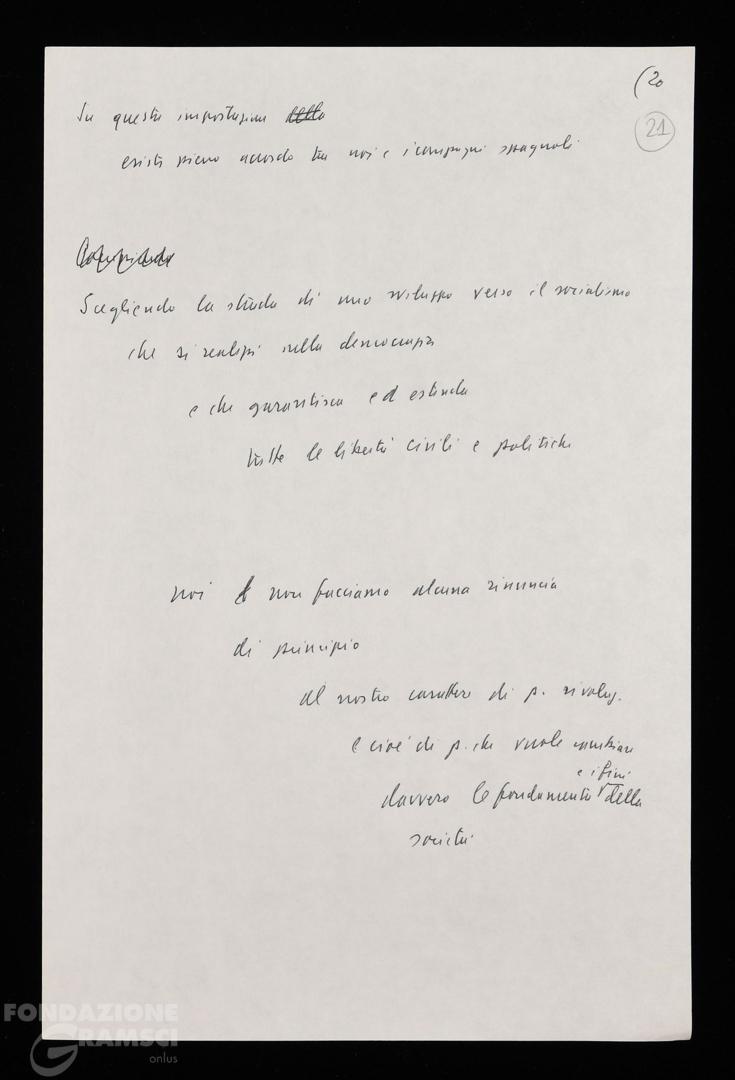 (20
21
Su questa impostazione della
esiste pieno accordo tra noi e i compagni spagnoli.
Scegliendo la strada di uno sviluppo verso il socialismo
che si realizzi nella democrazia
e che garantisca ed estenda
tutte le libertà civili e politiche
noi non facciamo alcuna rinuncia
di principio
al nostro carattere di p. rivoluz.
e cioè di p. che vuole cambiare
e i fini
davvero le fondamenta della
società.
FONDAZIONE
GRAMSCI
onlus